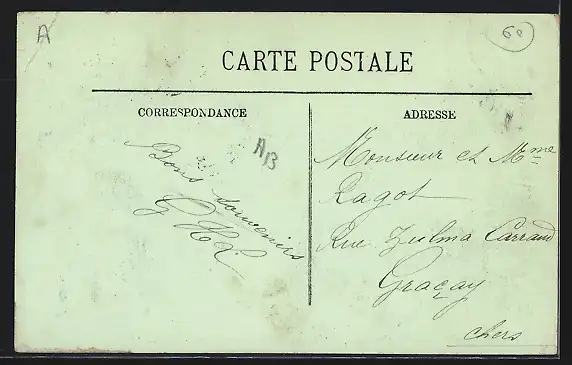 A
60
CARTE POSTALE
CORRESPONDANCE
ADRESSE
AB
Bons souvenirs
Monsieur et Mme
Ragot
Rue Zulma Carraud
Graçay
Chers